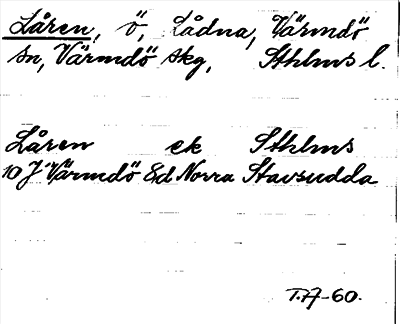 Låren, ö, Lådna, Värmdö
sn, Värmdö skg, Sthlms l.
Låren ek Sthlms
10 J Värmdö Ed Norra Stavsudda
T.A-60.